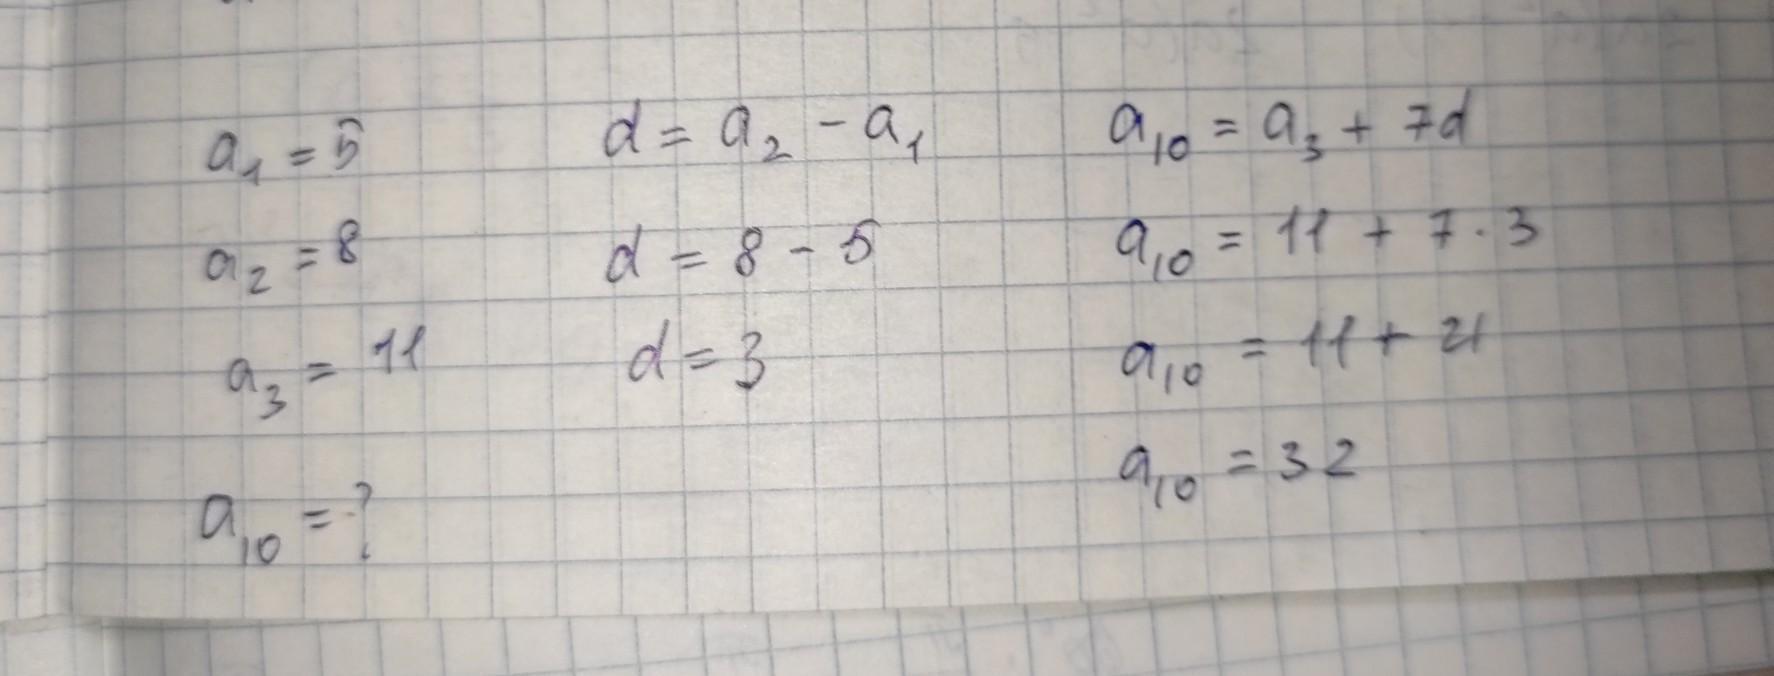 a₁ = 5
a₂ = 8
a₃ = 11
a₁₀ = ?
d = a₂ - a₁
d = 8 - 5
d = 3
a₁₀ = a₃ + 7d
a₁₀ = 11 + 7 · 3
a₁₀ = 11 + 21
a₁₀ = 32